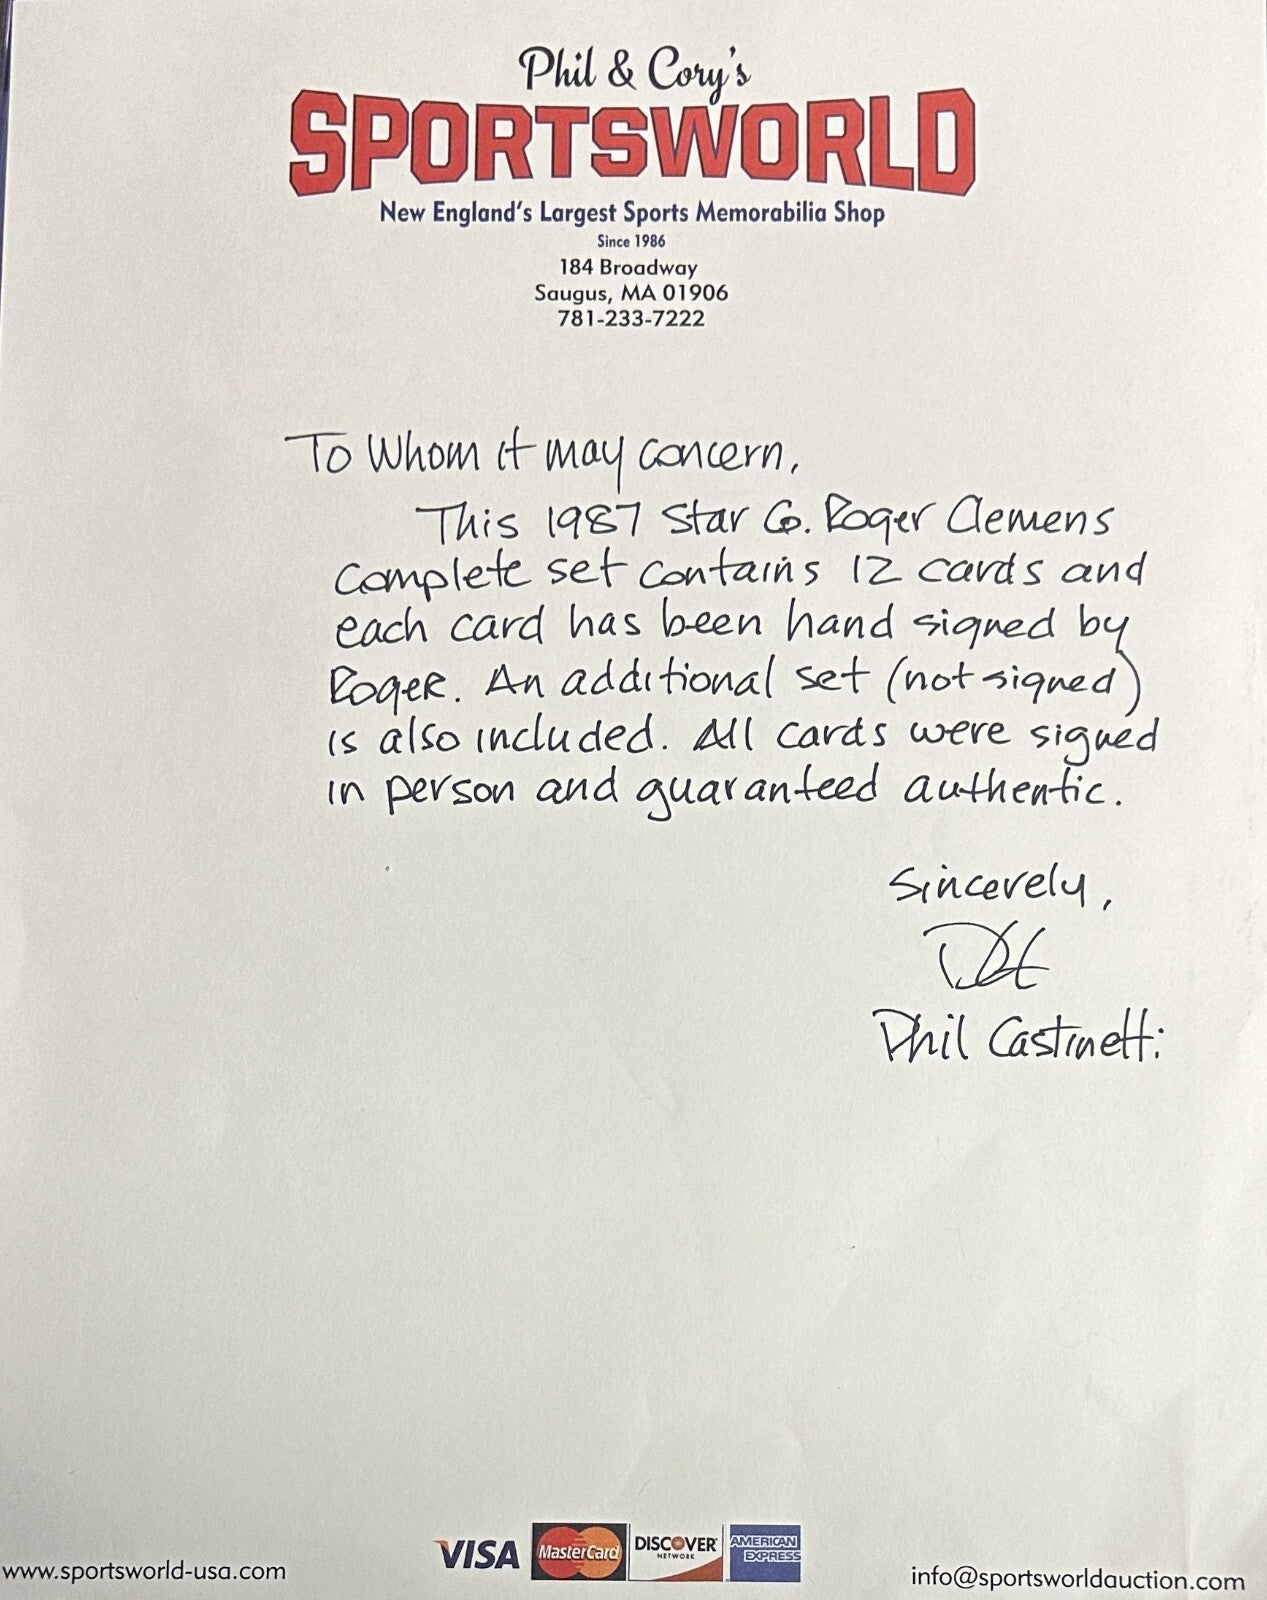 Phil & Cory's
SPORTSWORLD
New England's Largest Sports Memorabilia Shop
Since 1986
184 Broadway
Saugus, MA 01906
781-233-7222
To Whom it may concern,
This 1987 Star Co. Roger Clemens
complete set contains 12 cards and
each card has been hand signed by
Roger. An additional set (not signed)
is also included. All cards were signed
in person and guaranteed authentic.
Sincerely,
Phil Castinetti
VISA MasterCard DISCOVER NETWORK AMERICAN EXPRESS
www.sportsworld-usa.com info@sportsworldauction.com